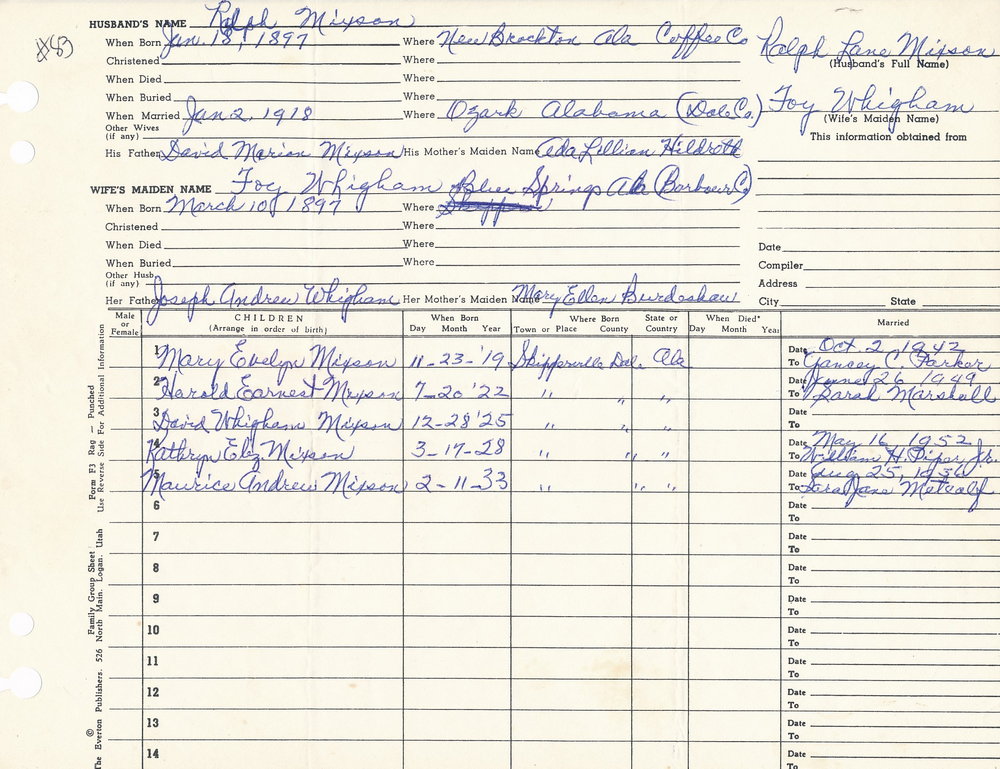 #83
HUSBAND'S NAME Ralph Mixson
When Born Jan. 18, 1897 Where New Brockton Ala Coffee Co
Ralph Lane Mixson
(Husband's Full Name)
Christened Where
When Died Where
When Buried Where
When Married Jan 2, 1918 Where Ozark Alabama (Dale Co.)
Foy Whigham
(Wife's Maiden Name)
This information obtained from
Other Wives
(if any)
His Father David Marion Mixson His Mother's Maiden Name Ada Lillian Hildreth
WIFE'S MAIDEN NAME Foy Whigham Blue Springs Ala (Barbour Co)
When Born March 10, 1897 Where
Christened Where
When Died Where
When Buried Where
Other Husb.
(if any)
Her Father Joseph Andrew Whigham Her Mother's Maiden Name Mary Ellen Burdeshaw
Date
Compiler
Address
City State
Male or Female
CHILDREN
(Arrange in order of birth)
When Born
Day Month Year
Where Born
Town or Place County
State or Country
When Died*
Day Month Year
Married
1 Mary Evelyn Mixson 11-23-'19 Skipperville Dale Ala Date Oct. 2, 1942
To Yancey C. Parker
2 Harold Earnest Mixson 7-20 '22 " " " Date June 26, 1949
To Sarah Marshall
3 David Whigham Mixson 12-28 '25 " " " Date
To
4 Kathryn Eliz. Mixson 3-17-28 " " " Date May 16, 1952
To William H. Piper, Jr.
5 Maurice Andrew Mixson 2-11-33 " " " Date Aug 25, 1956
To Sara Jane Metcalf
6 Date
To
7 Date
To
8 Date
To
9 Date
To
10 Date
To
11 Date
To
12 Date
To
13 Date
To
14 Date
To
Form F3 Rag — Punched
Use Reverse Side For Additional Information
Family Group Sheet
© The Everton Publishers. 526 North Main. Logan. Utah